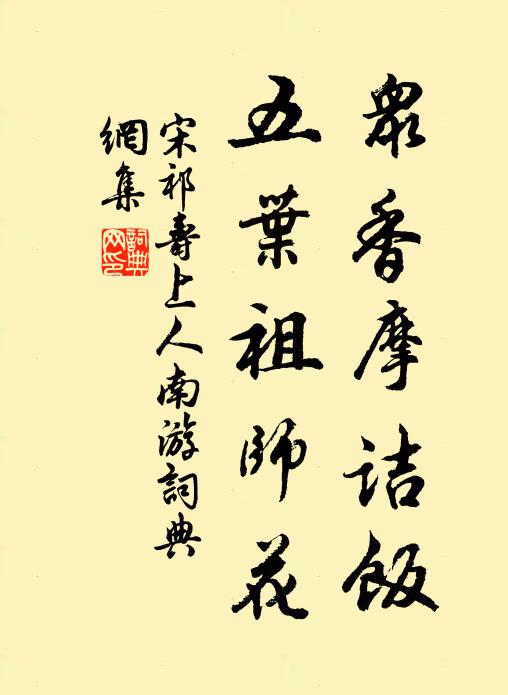 眾香摩詰飯
五葉祖師花
宋祁壽上人南游詞典
網集
詞典
网印